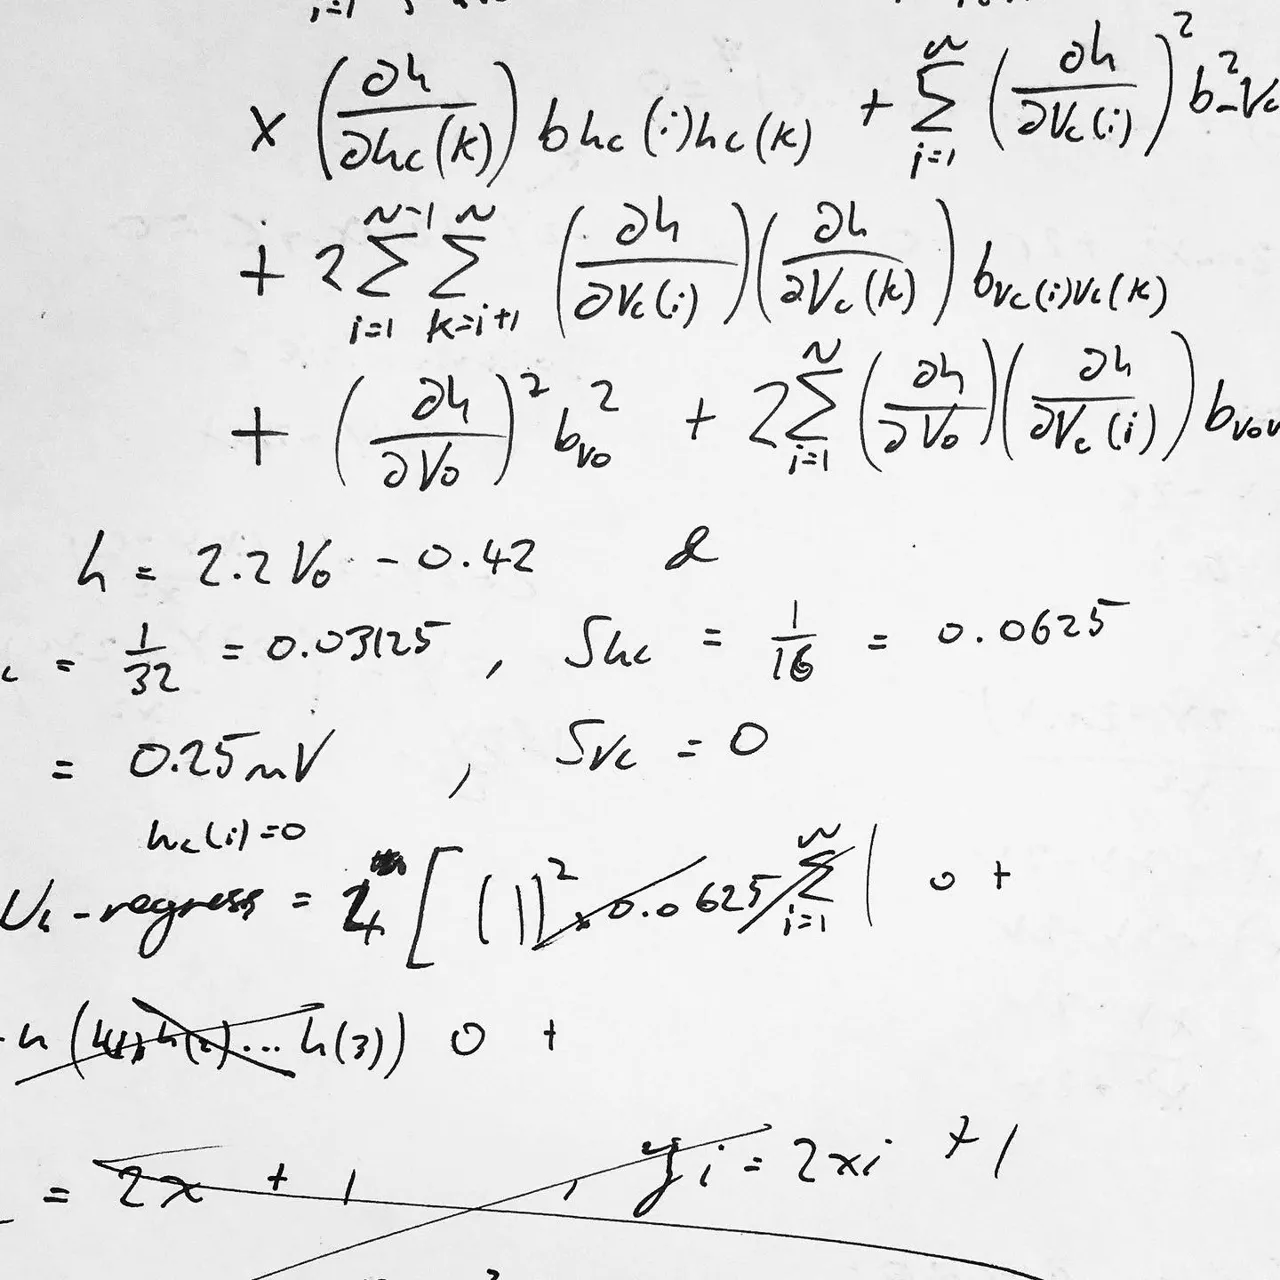 × (∂h / ∂hc(k)) b hc(i)hc(k) + Σ_{i=1}^{N} (∂h / ∂Vc(i))² b² Vc
+ 2 Σ_{i=1}^{N-1} Σ_{k=i+1}^{N} (∂h / ∂Vc(i)) (∂h / ∂Vc(k)) b_{Vc(i)Vc(k)}
+ (∂h / ∂Vo)² b²_{Vo} + 2 Σ_{i=1}^{N} (∂h / ∂Vo) (∂h / ∂Vc(i)) b_{Vo
h = 2.2 Vo - 0.42 &
c = 1/32 = 0.03125 , Shc = 1/16 = 0.0625
= 0.25mV , Svc = 0
hc(i)=0
Uh-regress = [ (1)² × 0.0625 Σ_{i=1}^{N} 0 +
h(2) ... h(3)) 0 +
= 2x + 1 , yi = 2xi + 1